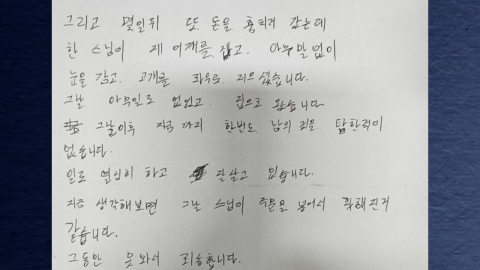 그리고 몇일뒤 또 돈을 훔치러 갔는데
한 스님이 제 어깨를 잡고. 아무말없이
눈을 감고. 고개를 좌우로 저으셨습니다.
그날 아무일도 없었고. 집으로 왔습니다
그날이후 지금까지 한번도 남의 것을 탐한적이
없습니다.
일도 열심히 하고 잘살고 있습니다.
지금 생각해보면 그날 스님이 주문을 넣어서 착해진거
같습니다.
그동안 못와서 죄송합니다.